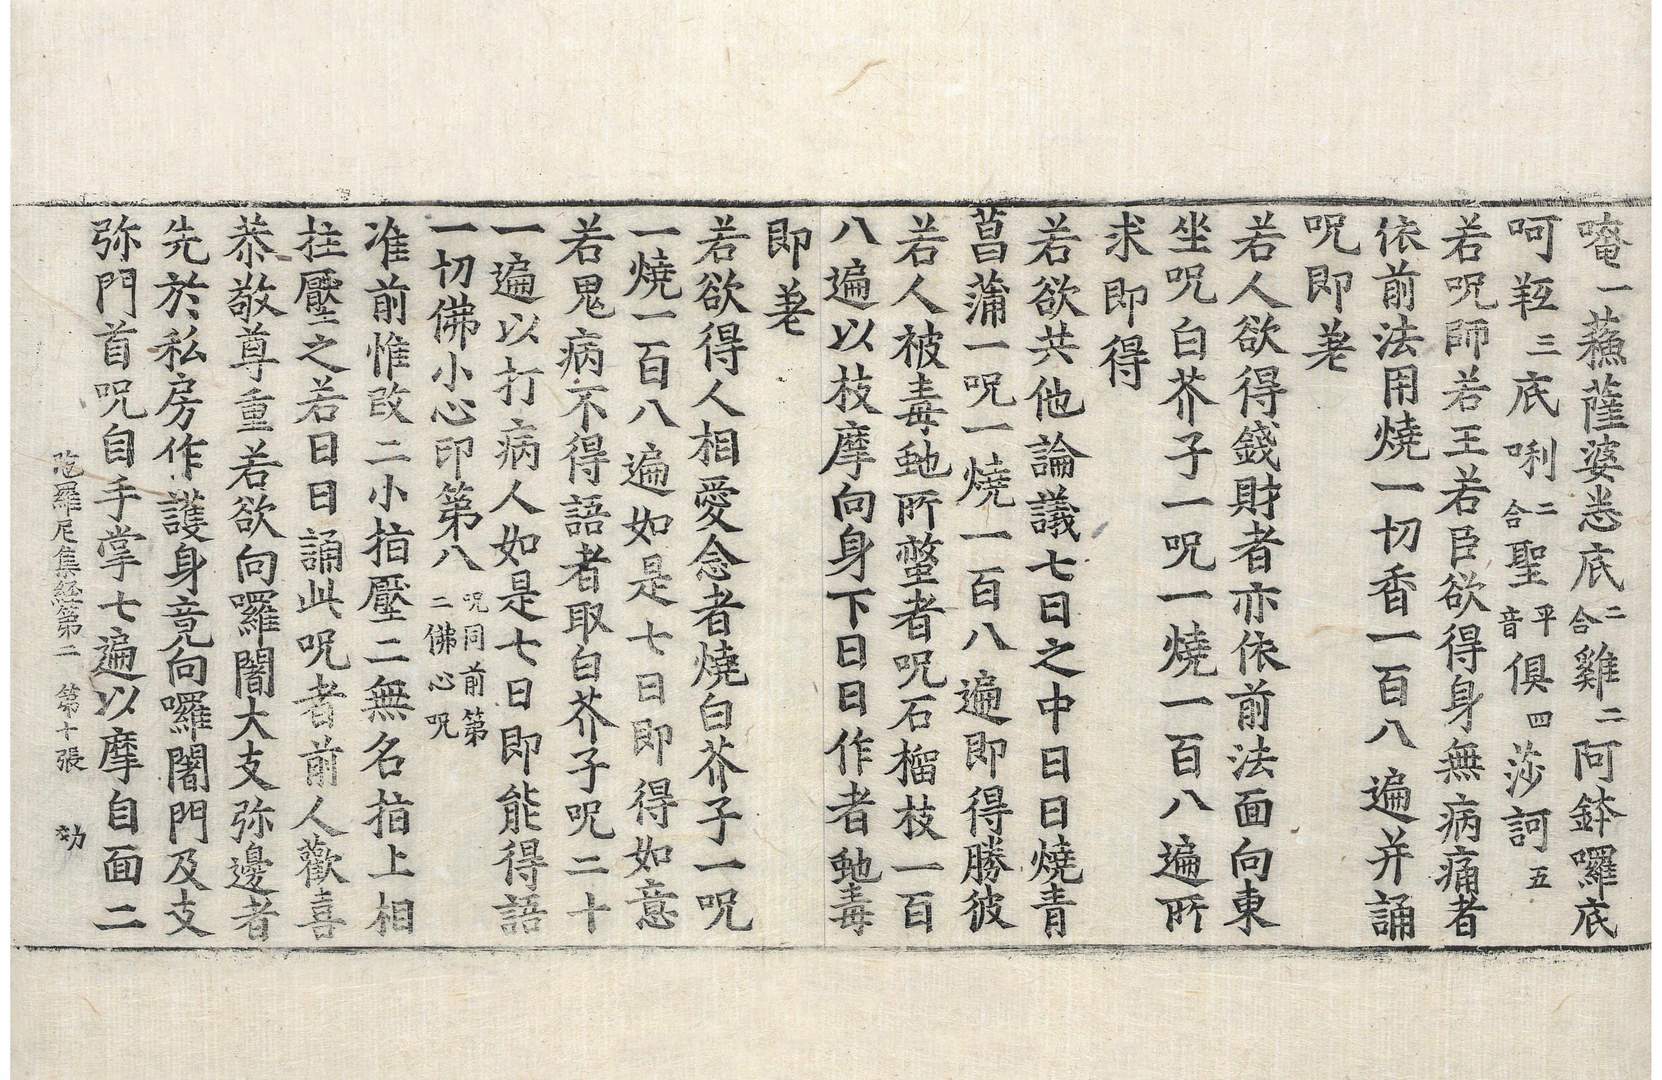 唵一蘓薩婆悉底二合雞二阿鉢囉底
呵𦍕三底唎二合聖平音俱四莎訶五
若呪師若王若臣欲得身無病痛者
依前法用燒一切香一百八遍并誦
呪即差
若人欲得錢財者亦依前法面向東
坐呪白芥子一呪一燒一百八遍所
求即得
若欲共他論議七日之中日日燒青
菖蒲一呪一燒一百八遍即得勝彼
若人被毒虵所螫者呪石榴枝一百
八遍以枝摩向身下日日作者虵毒
即差
若欲得人相愛念者燒白芥子一呪
一燒一百八遍如是七日即得如意
若鬼病不得語者取白芥子呪二十
一遍以打病人如是七日即能得語
一切佛小心印第八呪同前第二佛心呪
准前惟改二小指壓二無名指上相
拄壓之若日日誦此呪者前人歡喜
恭敬尊重若欲向囉闍大支弥邊者
先於私房作護身竟向囉闍門及支
弥門首呪自手掌七遍以摩自面二
陁羅尼集経第二 第十張 㓛